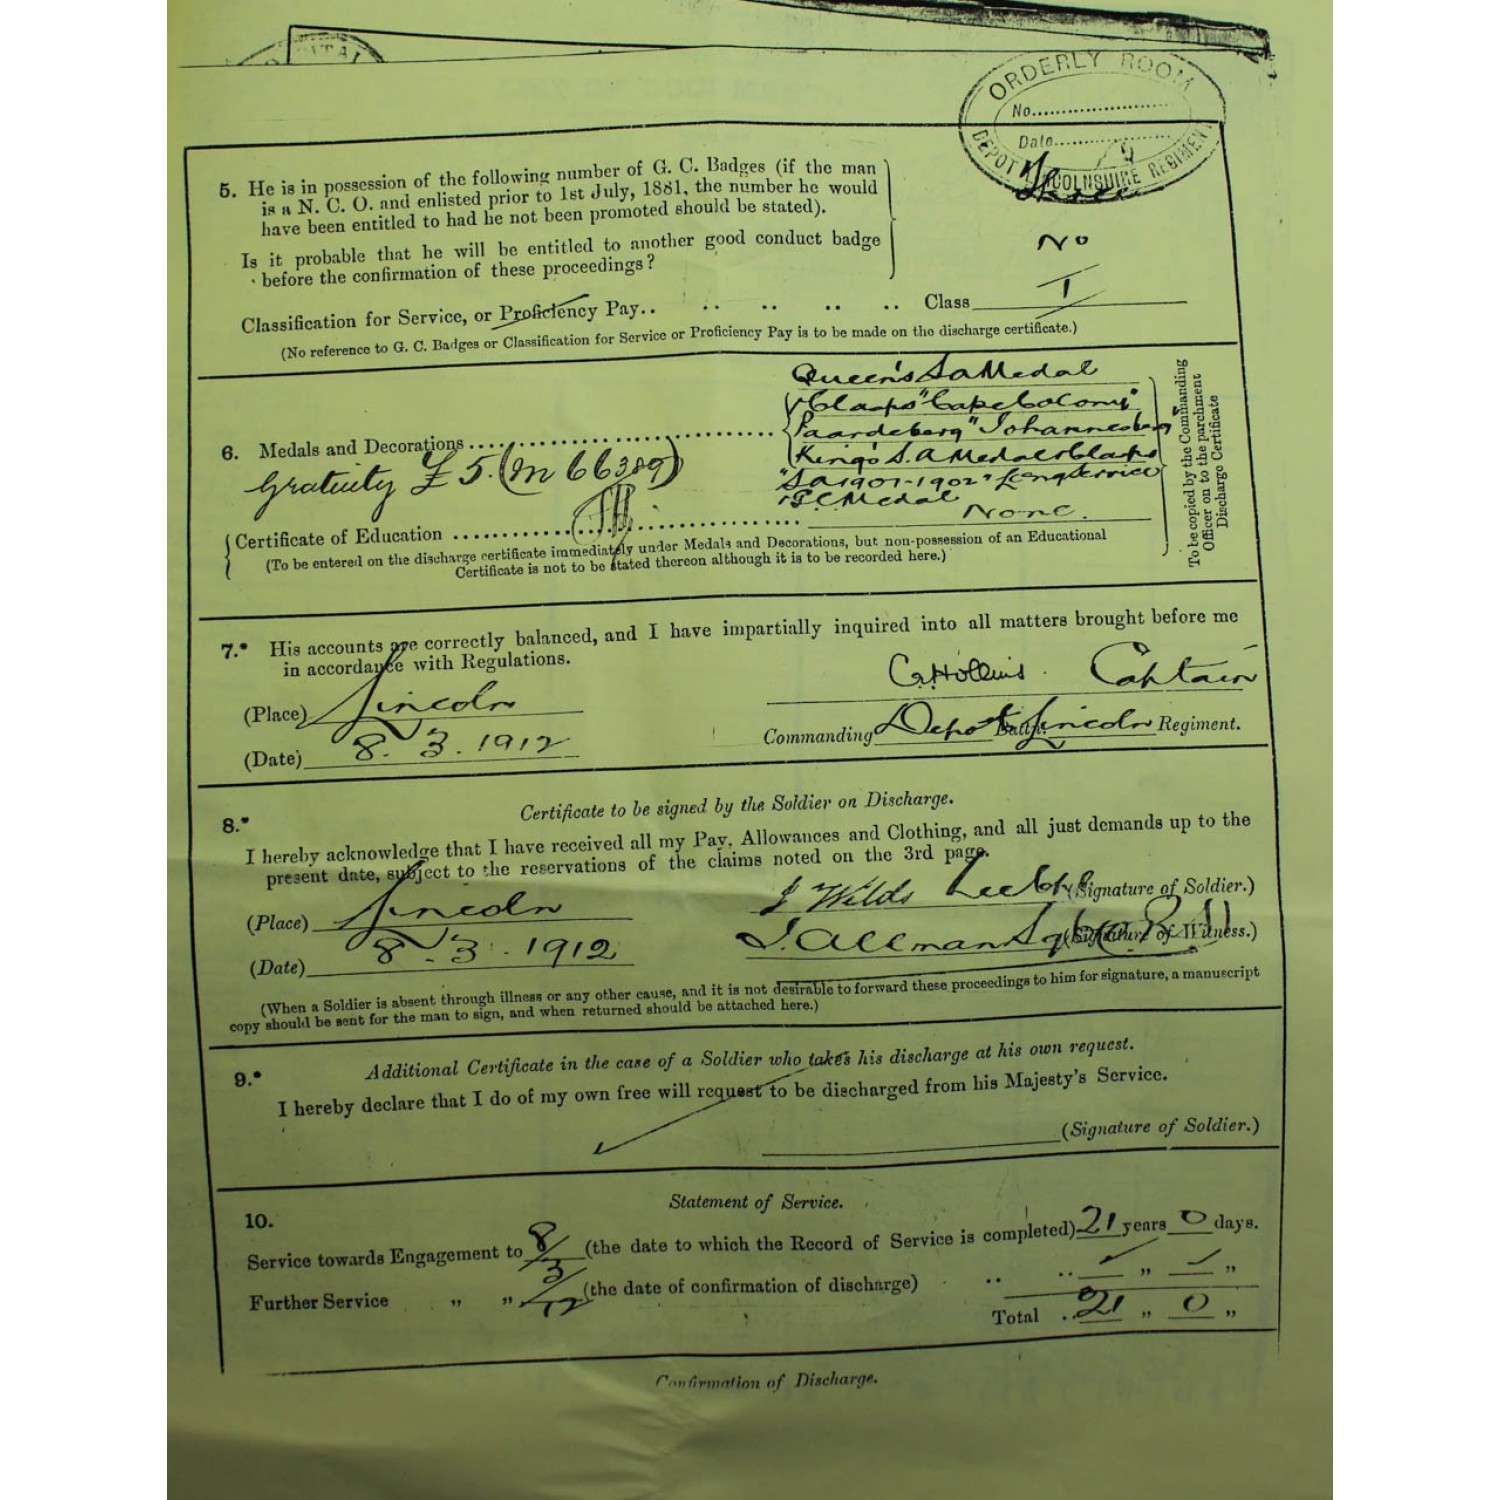 ORDERLY ROOM
No.
Date
DEPOT LINCOLNSHIRE REGIMENT
5. He is in possession of the following number of G. C. Badges (if the man
is a N. C. O. and enlisted prior to 1st July, 1881, the number he would
have been entitled to had he not been promoted should be stated).
Three
Is it probable that he will be entitled to another good conduct badge
before the confirmation of these proceedings?
No
Classification for Service, or Proficiency Pay.. .. .. .. .. Class I
(No reference to G. C. Badges or Classification for Service or Proficiency Pay is to be made on the discharge certificate.)
Queen's S A Medal
Clasps "Cape Colony"
Paardeberg" "Johannesberg"
6. Medals and Decorations
King's S.A Medal & Clasps
Gratuity £5. (M 66389)
"SA 1901-1902" Long Service
& G.C. Medal
Certificate of Education None.
(To be entered on the discharge certificate immediately under Medals and Decorations, but non-possession of an Educational
Certificate is not to be stated thereon although it is to be recorded here.)
To be copied by the Commanding
Officer on to the parchment
Discharge Certificate
7.* His accounts are correctly balanced, and I have impartially inquired into all matters brought before me
in accordance with Regulations.
C. Hollins Captain
(Place) Lincoln
Commanding Depot Battn. Lincoln Regiment.
(Date) 8. 3. 1912
8.* Certificate to be signed by the Soldier on Discharge.
I hereby acknowledge that I have received all my Pay, Allowances and Clothing, and all just demands up to the
present date, subject to the reservations of the claims noted on the 3rd page.
J Wilds (Signature of Soldier.)
(Place) Lincoln
J. Allman (Signature of Witness.)
(Date) 8. 3. 1912
(When a Soldier is absent through illness or any other cause, and it is not desirable to forward these proceedings to him for signature, a manuscript
copy should be sent for the man to sign, and when returned should be attached here.)
9.* Additional Certificate in the case of a Soldier who takes his discharge at his own request.
I hereby declare that I do of my own free will request to be discharged from his Majesty's Service.
(Signature of Soldier.)
Statement of Service.
10.
Service towards Engagement to 8/3/12 (the date to which the Record of Service is completed) 21 years 0 days.
Further Service " " (the date of confirmation of discharge) .. .. " "
Total .. 21 " 0 "
Confirmation of Discharge.